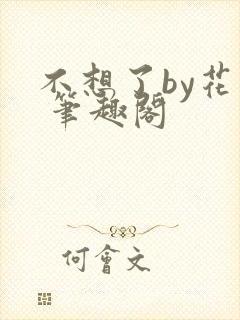 不想了by花
笔趣阁
何會文